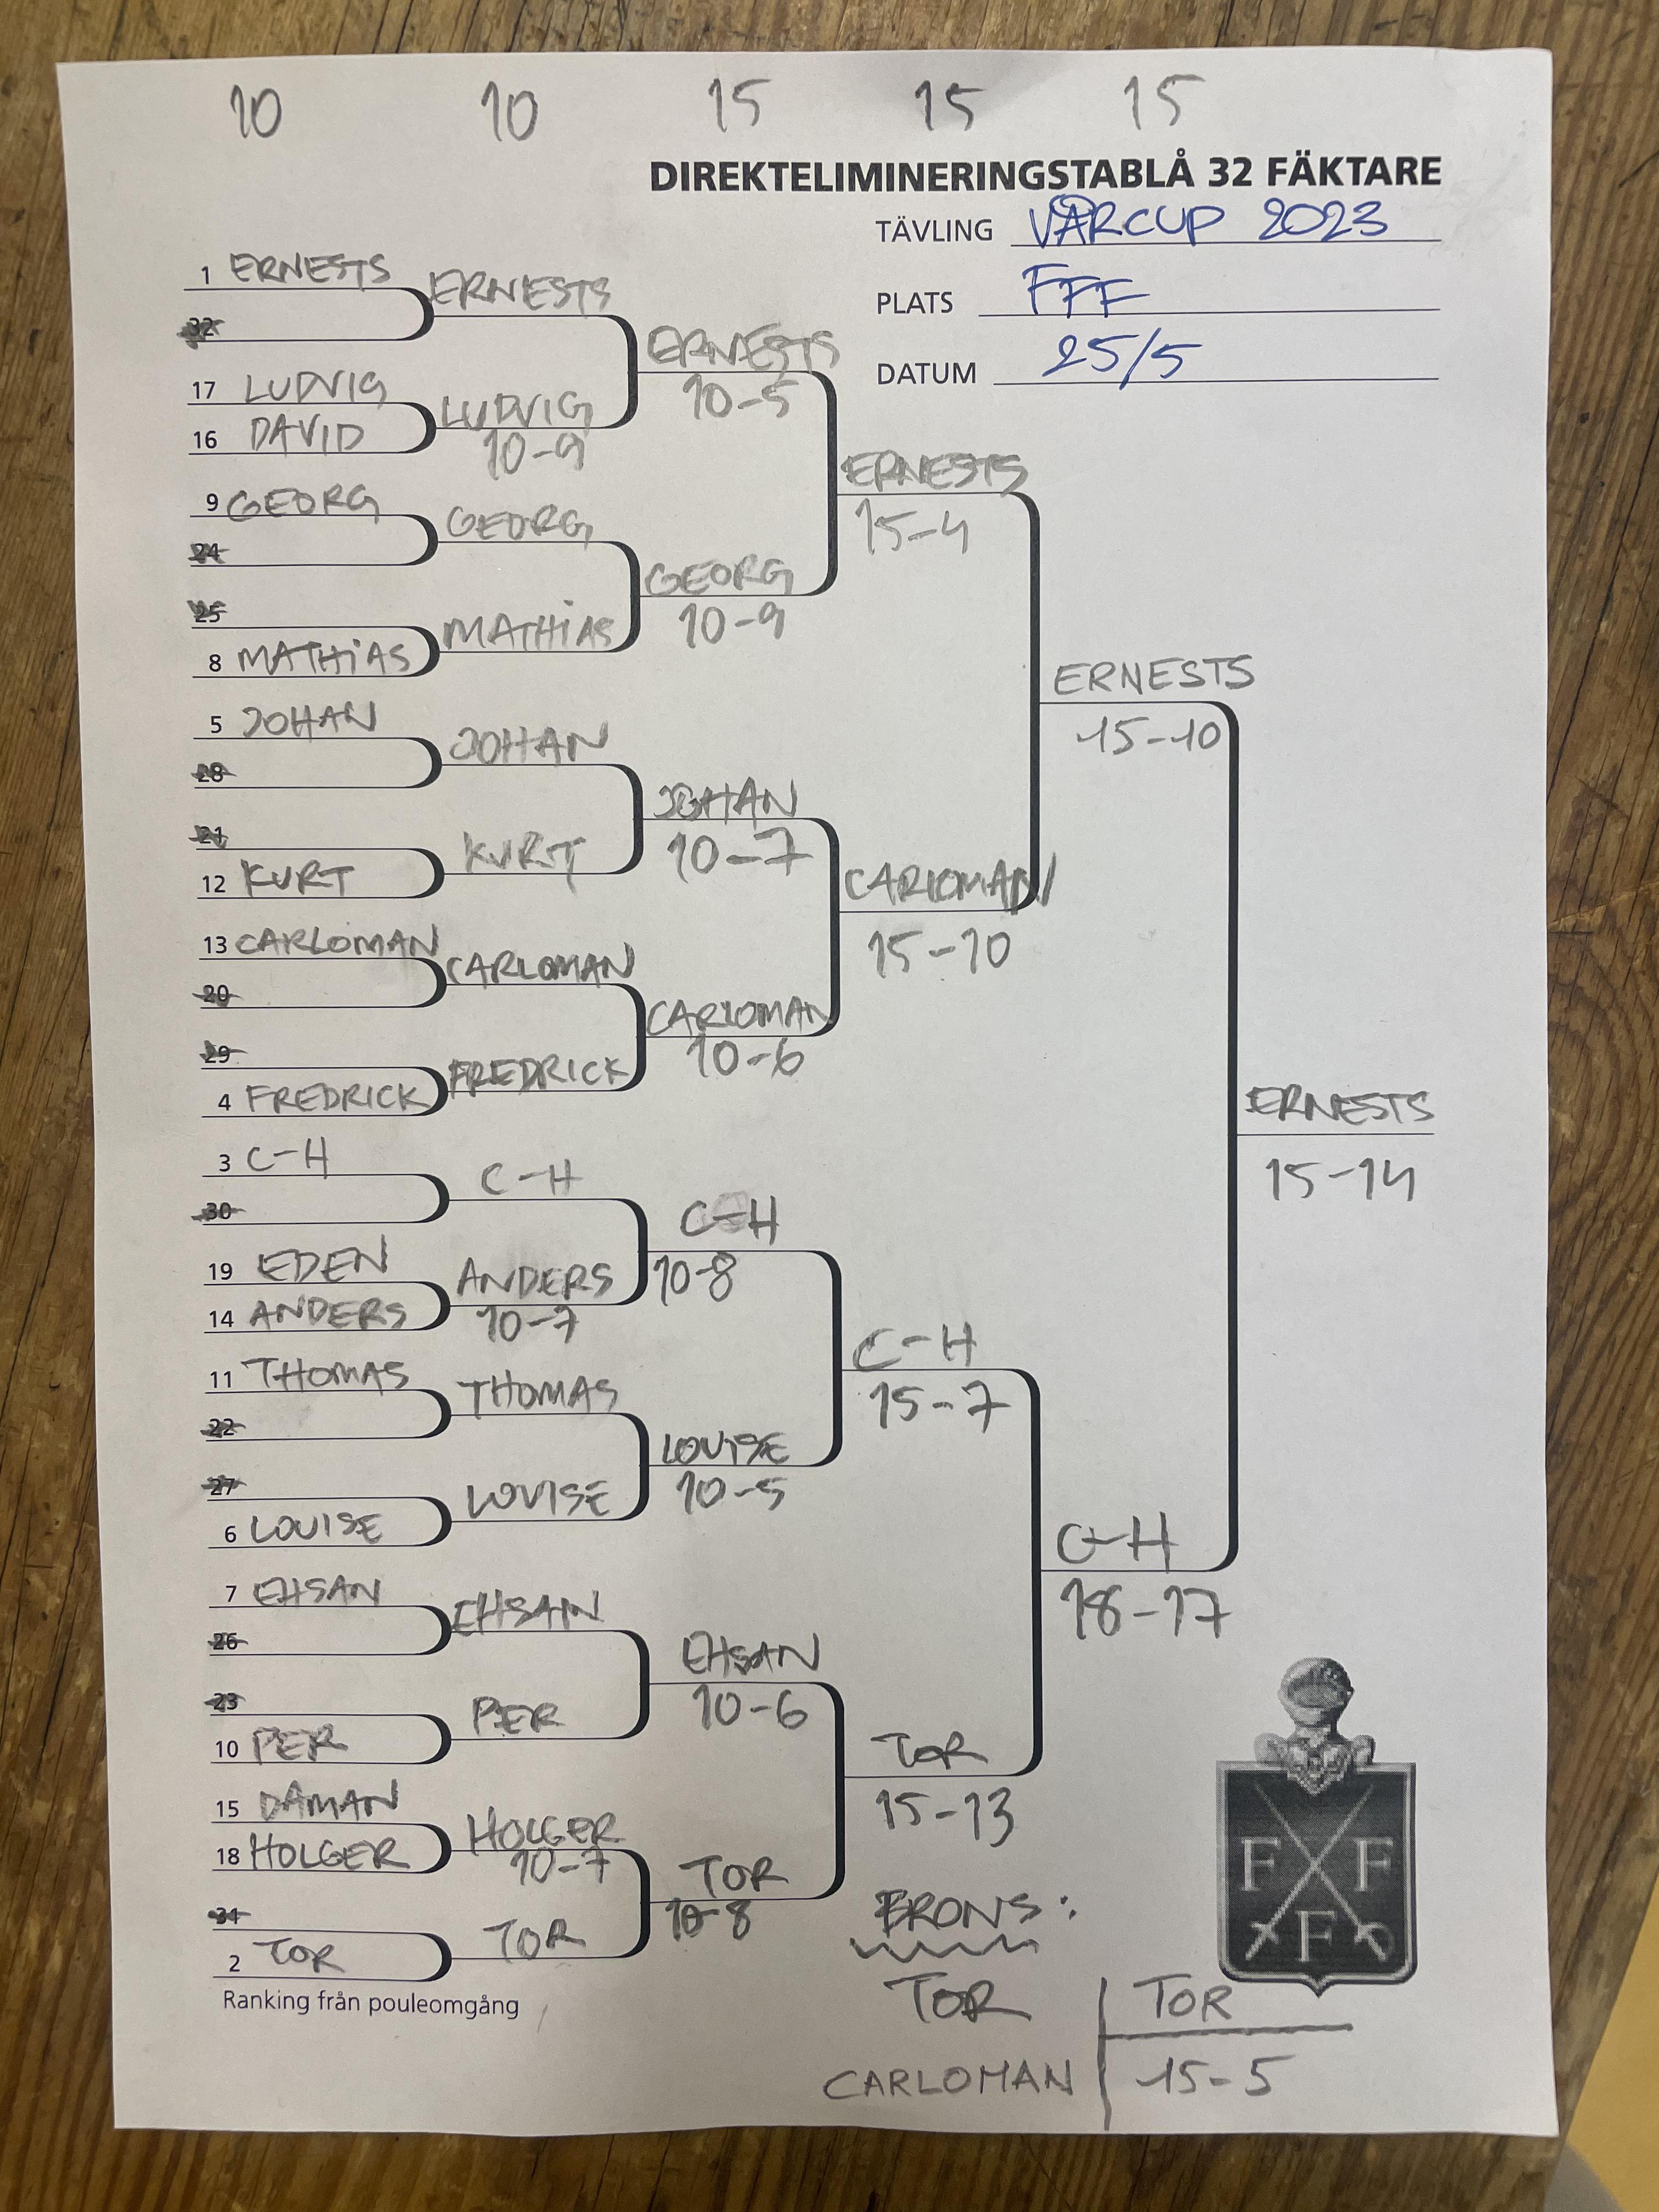 10 10 15 15 15
DIREKTELIMINERINGSTABLÅ 32 FÄKTARE
TÄVLING VÅRCUP 2023
PLATS FFF
DATUM 25/5
1 ERNESTS
32
17 LUDVIG
16 DAVID
9 GEORG
24
25
8 MATHIAS
5 JOHAN
28
21
12 KURT
13 CARLOMAN
20
29
4 FREDRICK
3 C-H
30
19 EDEN
14 ANDERS
11 THOMAS
22
27
6 LOUISE
7 EHSAN
26
23
10 PER
15 DAMAN
18 HOLGER
31
2 TOR
Ranking från pouleomgång
ERNESTS
LUDVIG
10-9
GEORG
MATHIAS
JOHAN
KURT
CARLOMAN
FREDRICK
C-H
ANDERS
10-7
THOMAS
LOUISE
EHSAN
PER
HOLGER
10-7
TOR
ERNESTS
10-5
GEORG
10-9
JOHAN
10-7
CARLOMAN
10-6
C-H
10-8
LOUISE
10-5
EHSAN
10-6
TOR
10-8
ERNESTS
15-4
CARLOMAN
15-10
C-H
15-7
TOR
15-13
ERNESTS
15-10
C-H
18-17
ERNESTS
15-14
BRONS:
TOR
CARLOMAN
TOR
15-5
F F
F